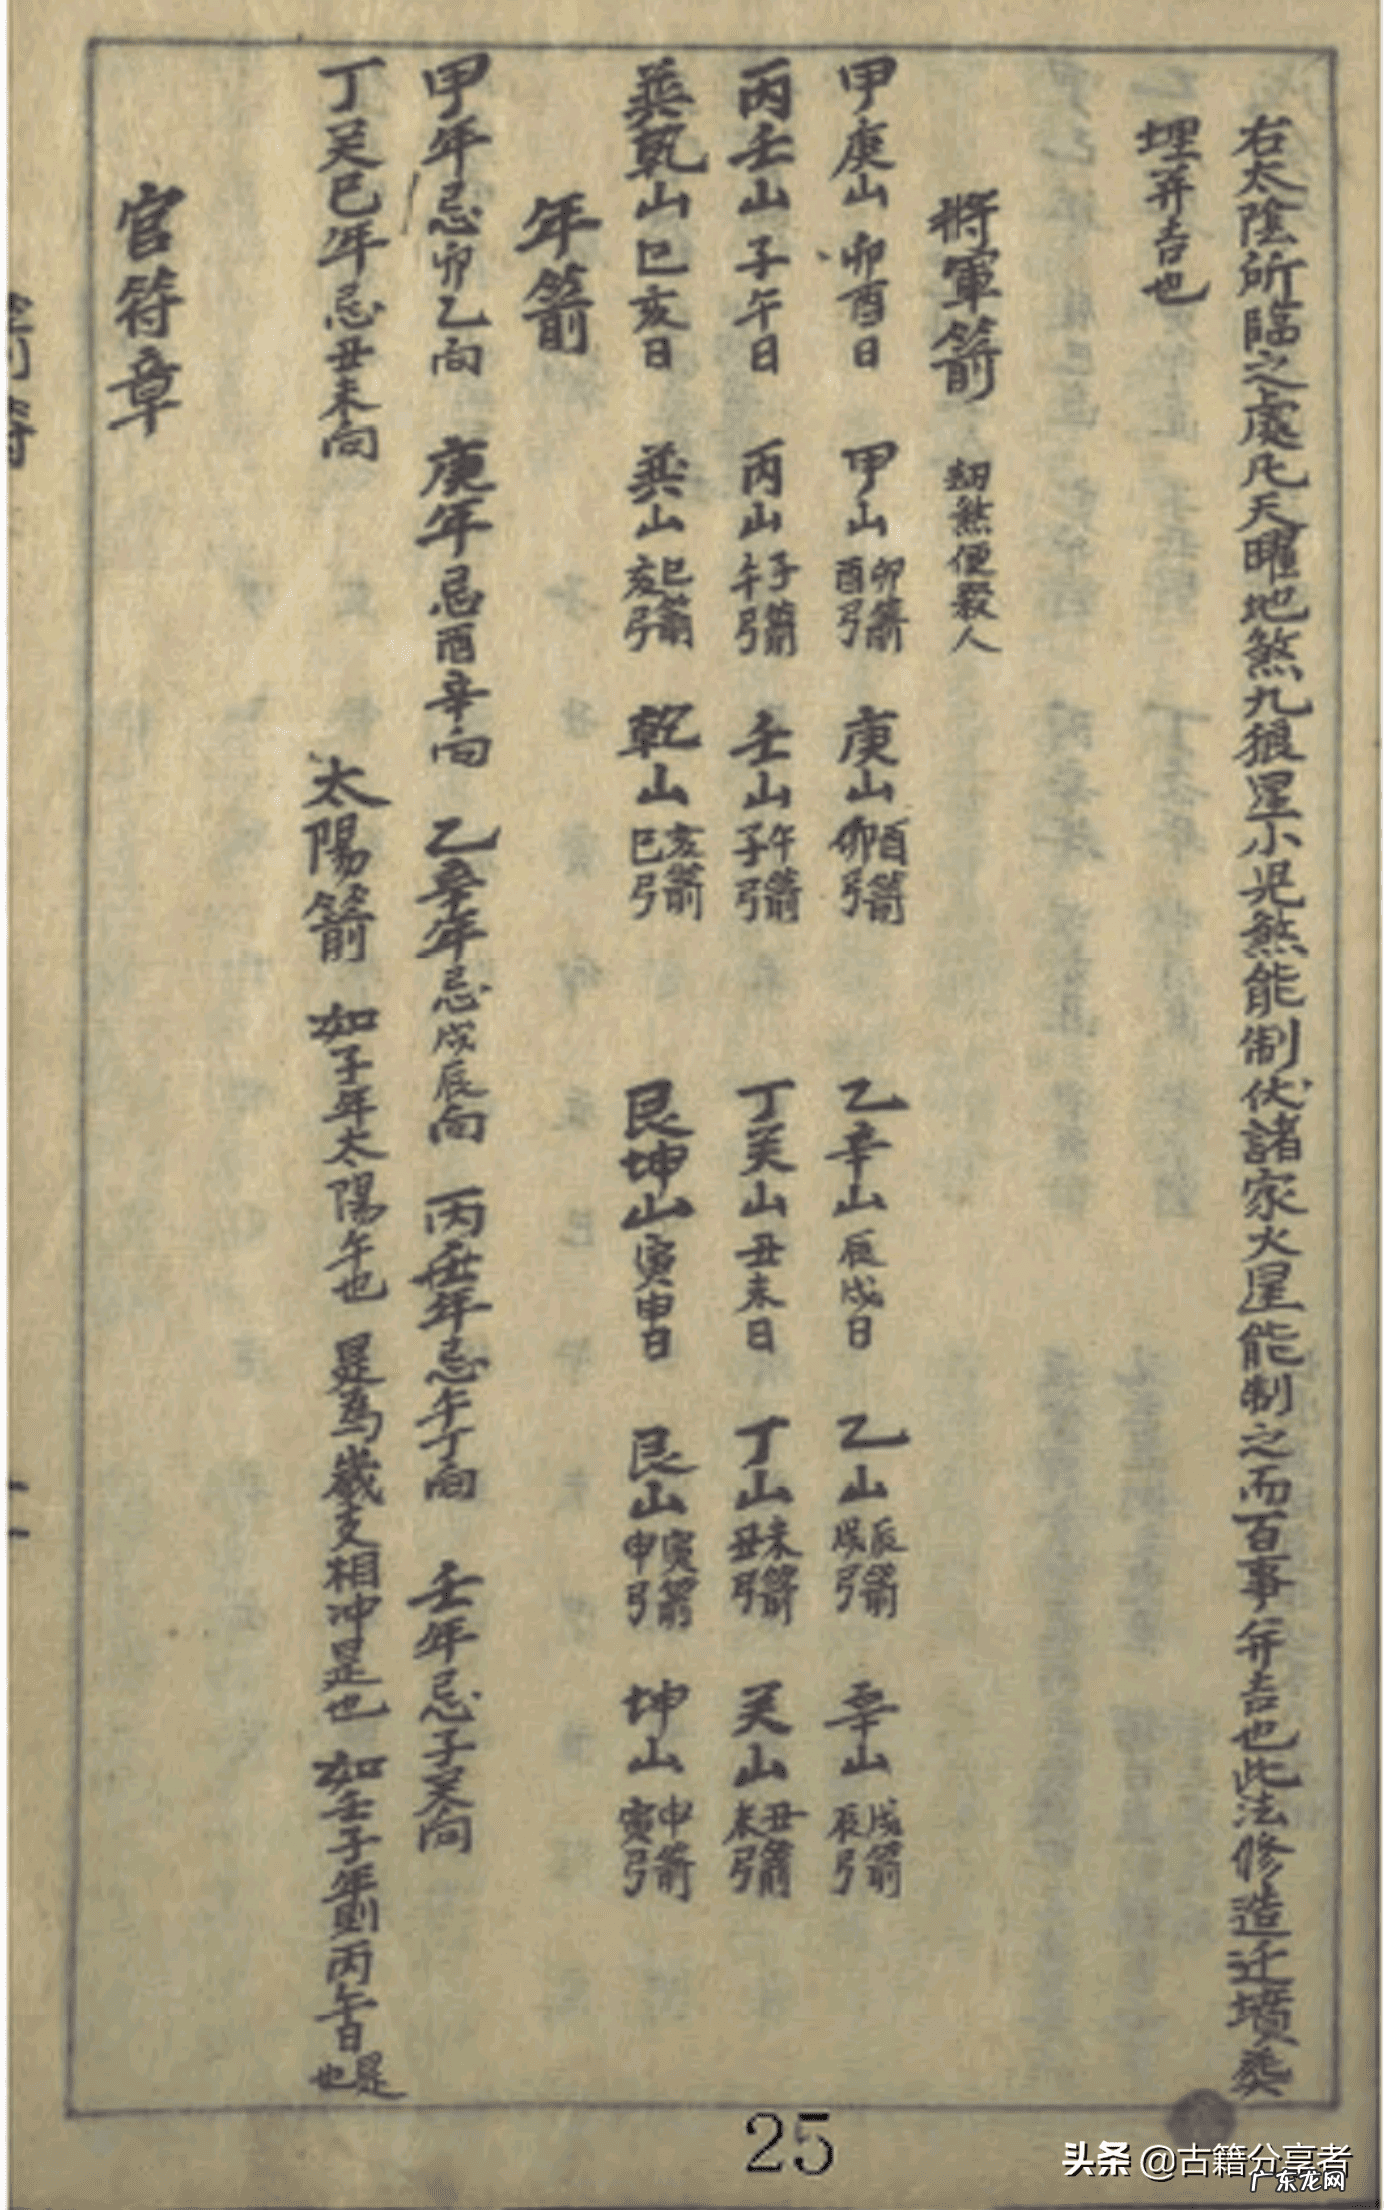 右太陰所臨之處凡天曜地煞九狼星小児煞能制伏諸家火星能制之而百事并吉也此法修造迁墳葬
埋并吉也
將軍箭 刼煞便殺人
甲庚山卯酉日 甲山卯箭酉弓 庚山酉箭卯弓 乙辛山辰戌日 乙山辰箭戌弓 辛山戌箭辰弓
丙壬山子午日 丙山子箭午弓 壬山午箭子弓 丁癸山丑未日 丁山未箭丑弓 癸山丑箭未弓
巽乾山巳亥日 巽山巳箭亥弓 乾山亥箭巳弓 艮坤山寅申日 艮山寅箭申弓 坤山申箭寅弓
年箭
甲年忌卯乙向 庚年忌酉辛向 乙辛年忌戌辰向 丙壬年忌午丁向 壬年忌子癸向
丁癸巳年忌丑未向 太陽箭 如子年太陽午也 是為歲支相冲是也 如壬子年則丙午日是也
官符章
25
头条 @古籍分享者
广东龙网